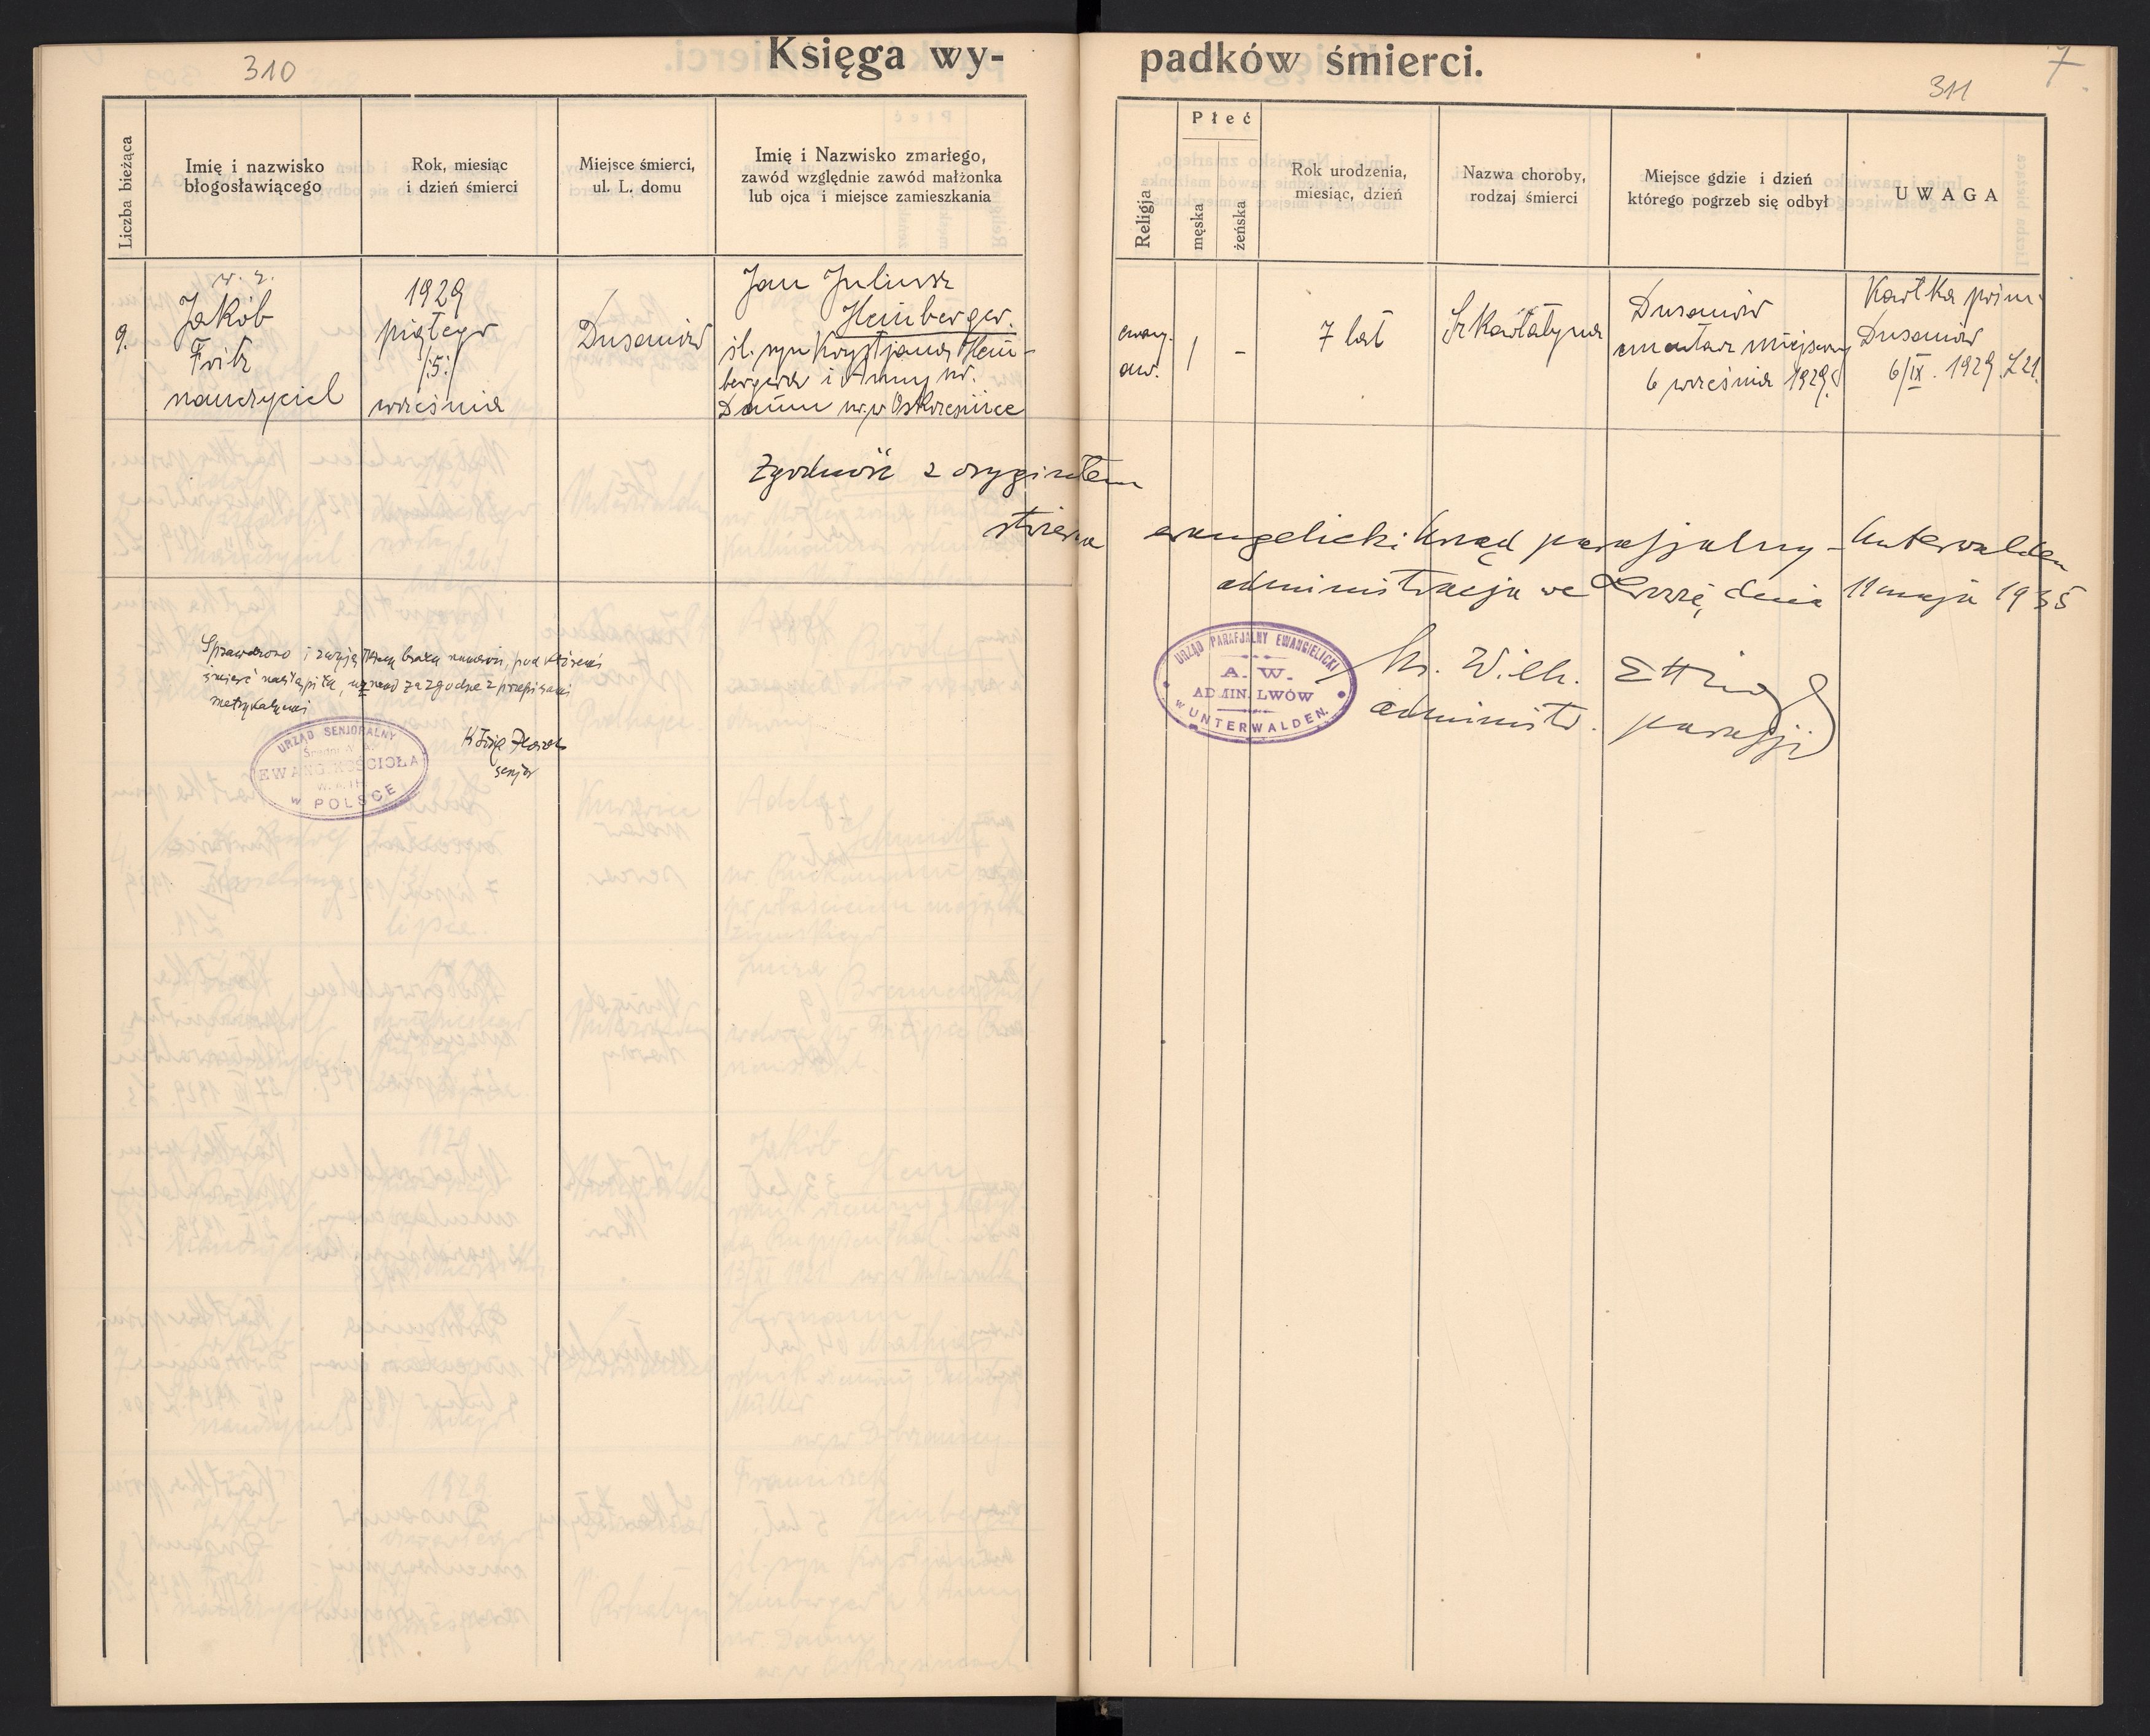 310
Księga wy-
padków śmierci.
7
311
Liczba bieżąca
Imię i nazwisko
błogosławiącego
Rok, miesiąc
i dzień śmierci
Miejsce śmierci,
ul. L. domu
Imię i Nazwisko zmarłego,
zawód względnie zawód małżonka
lub ojca i miejsce zamieszkania
Religja
Płeć
męska
żeńska
Rok urodzenia,
miesiąc, dzień
Nazwa choroby,
rodzaj śmierci
Miejsce gdzie i dzień
którego pogrzeb się odbył
UWAGA
9.
Jakób
Fritz
nauczyciel
1929
piątego
/5./
września
Dusanów
Jan Juljusz
Heinberger.
śl. syn Krystjana Hein-
bergera i Anny ur.
Daum
ewang.
aw.
1
-
7 lat
Szkarlatyna
Dusanów
cmentarz miejscowy
6 września 1929.
Kartka
Dusanów
6/IX. 1929. L21.
Zgodność z oryginałem
stwierdza ewangelicki Urząd parafjalny - Unterwalden
administracja we Lwowie, dnia 11 maja 1935
URZĄD PARAFJALNY EWANGIELICKI
A. W.
ADMIN. LWÓW
w UNTERWALDEN.
Ks. Wilh. Ettinger
administr. parafji
Sprawdzono i z wyjątkiem braku numeru, pod którem
śmierć nastąpiła, uznano za zgodne z przepisami
metrykalnymi
URZĄD SENJORALNY
EWANG. KOŚCIOŁA
w POLSCE
senjor